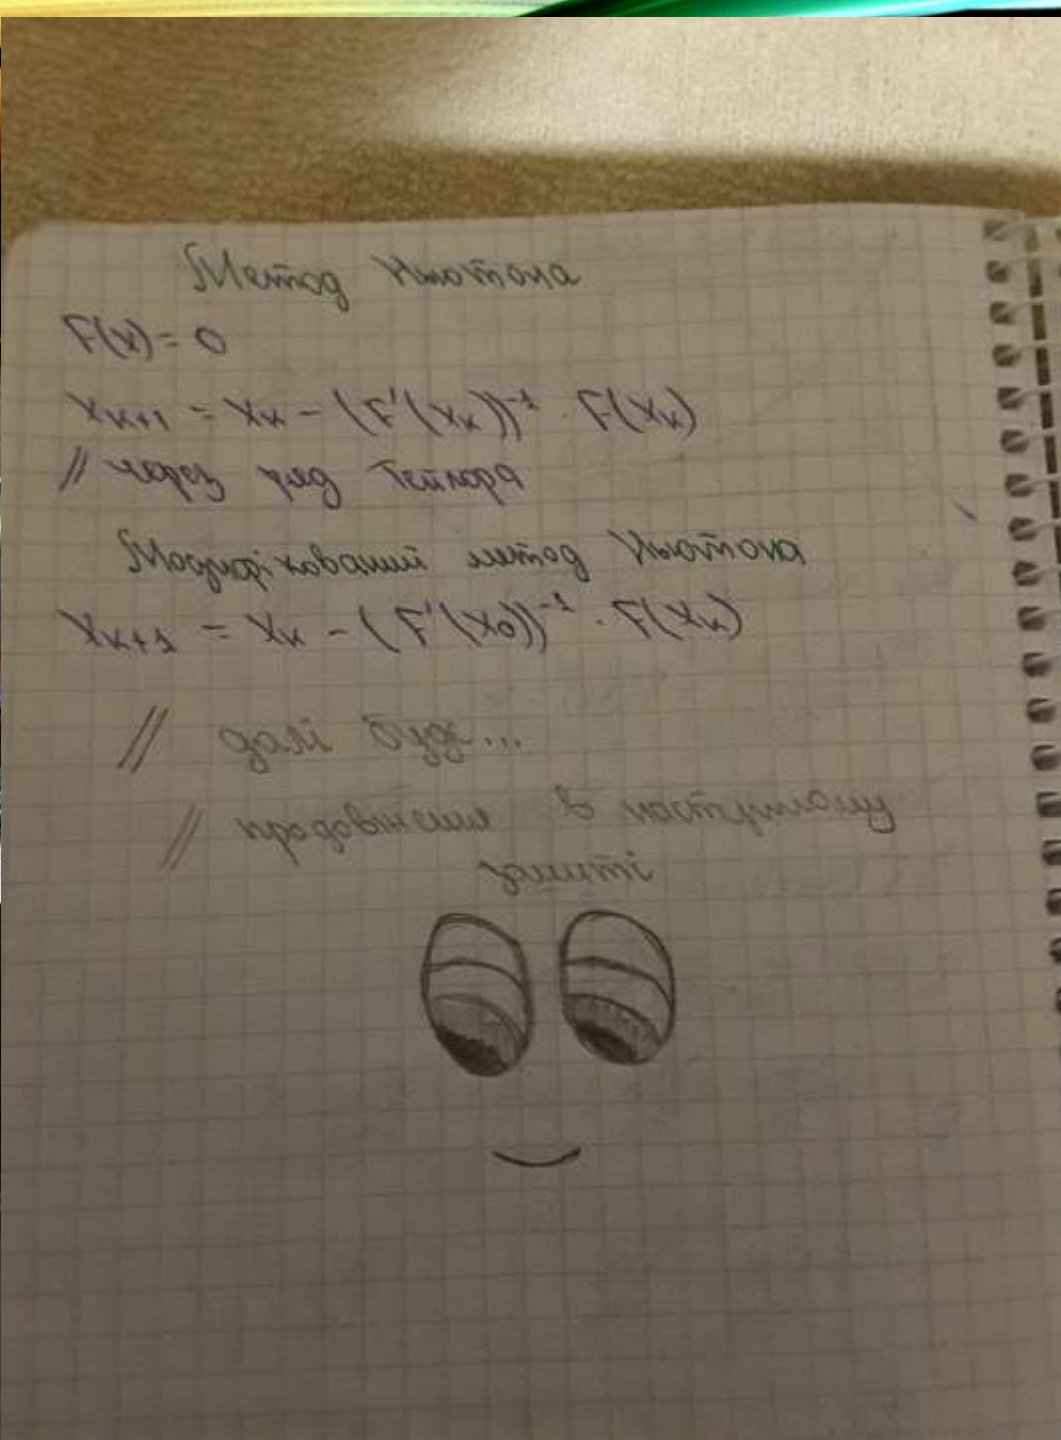 Метод Ньютона
F(x) = 0
x_{k+1} = x_k - (F'(x_k))^{-1} · F(x_k)
// через ряд Тейлора
Модифікований метод Ньютона
x_{k+1} = x_k - (F'(x_0))^{-1} · F(x_k)
// далі буде...
// продовження в наступному
зошиті